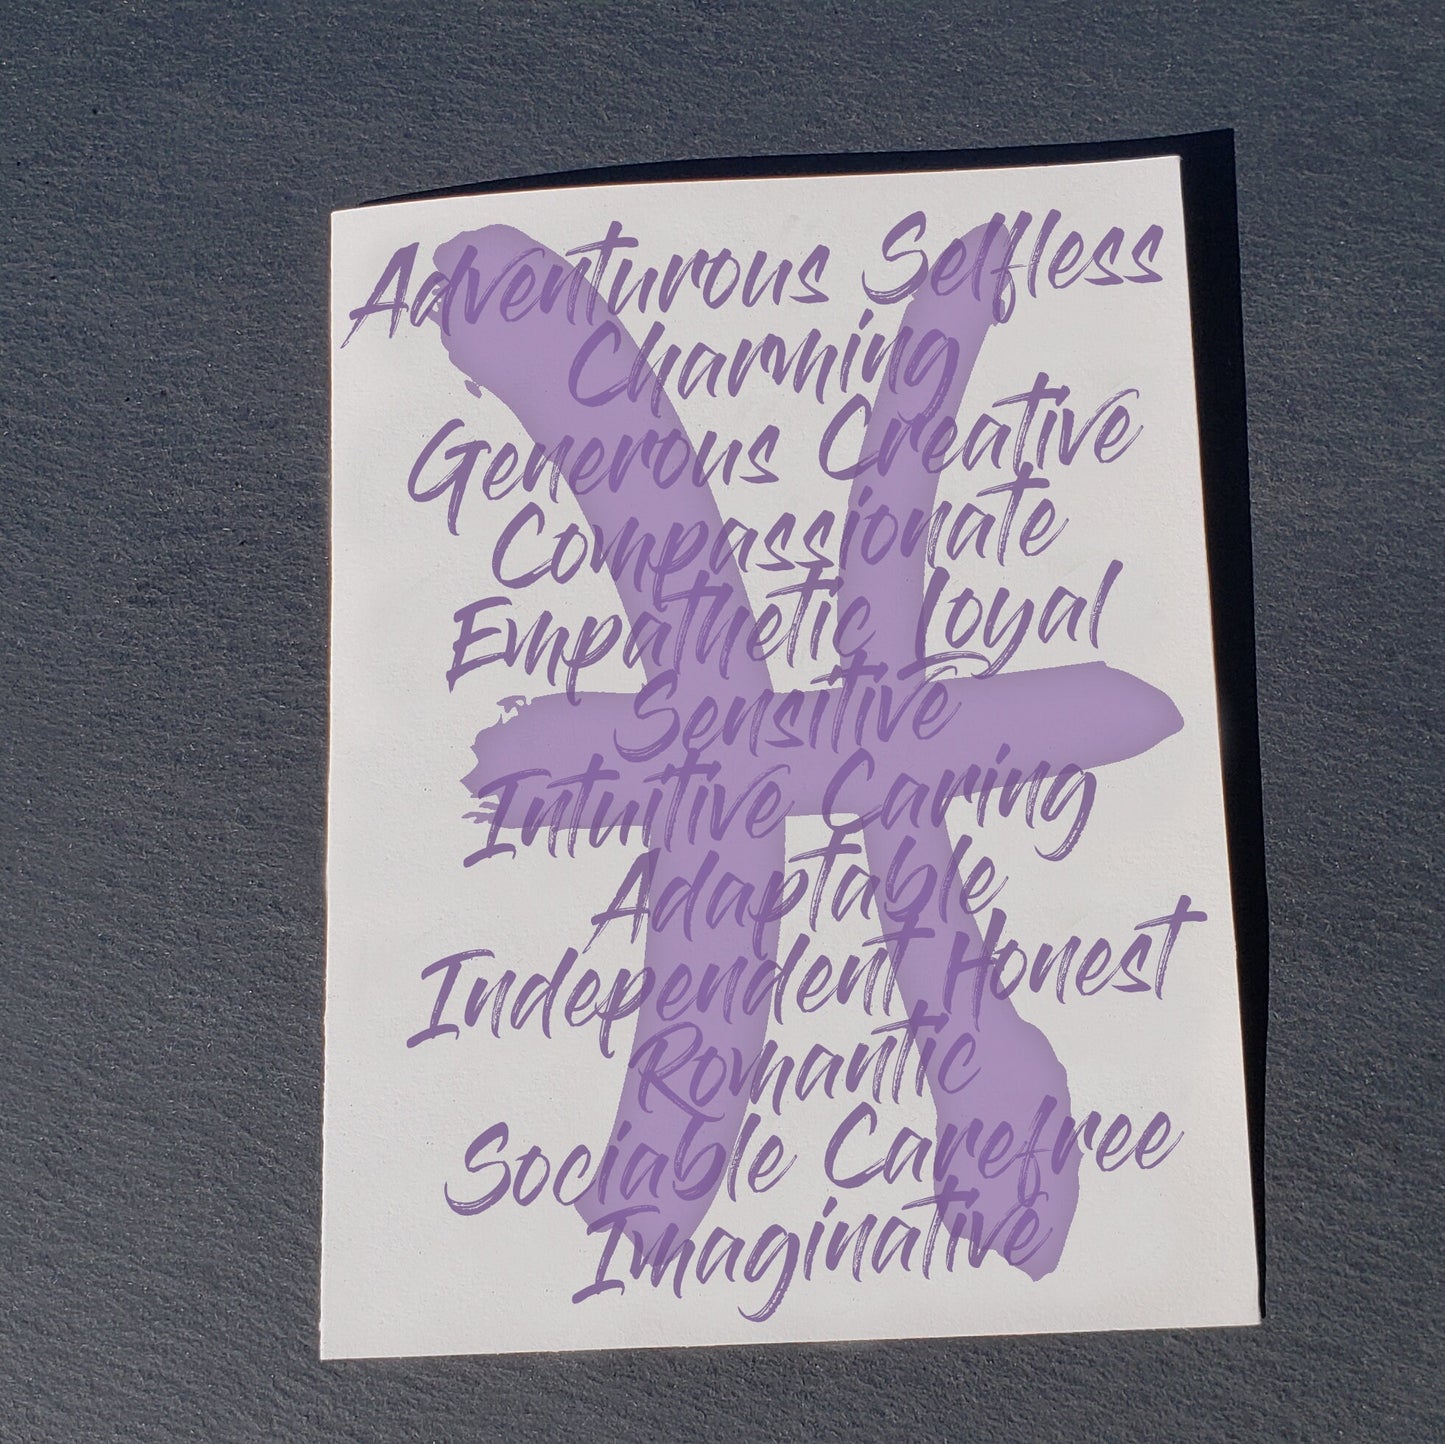 Adventurous Selfless
Charming
Generous Creative
Compassionate
Empathetic Loyal
Sensitive
Intuitive Caring
Adaptable
Independent Honest
Romantic
Sociable Carefree
Imaginative